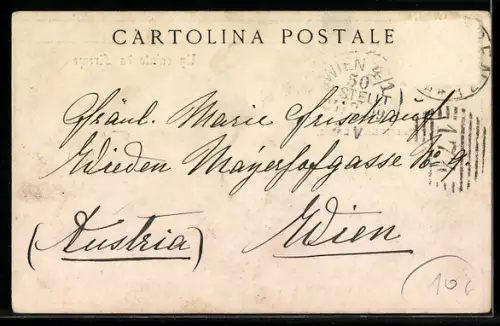 CARTOLINA POSTALE
WIEN 4/1
Fräul. Marie Frischauf
Wieden Mayerhofgasse No 9.
(Austria) Wien
10c